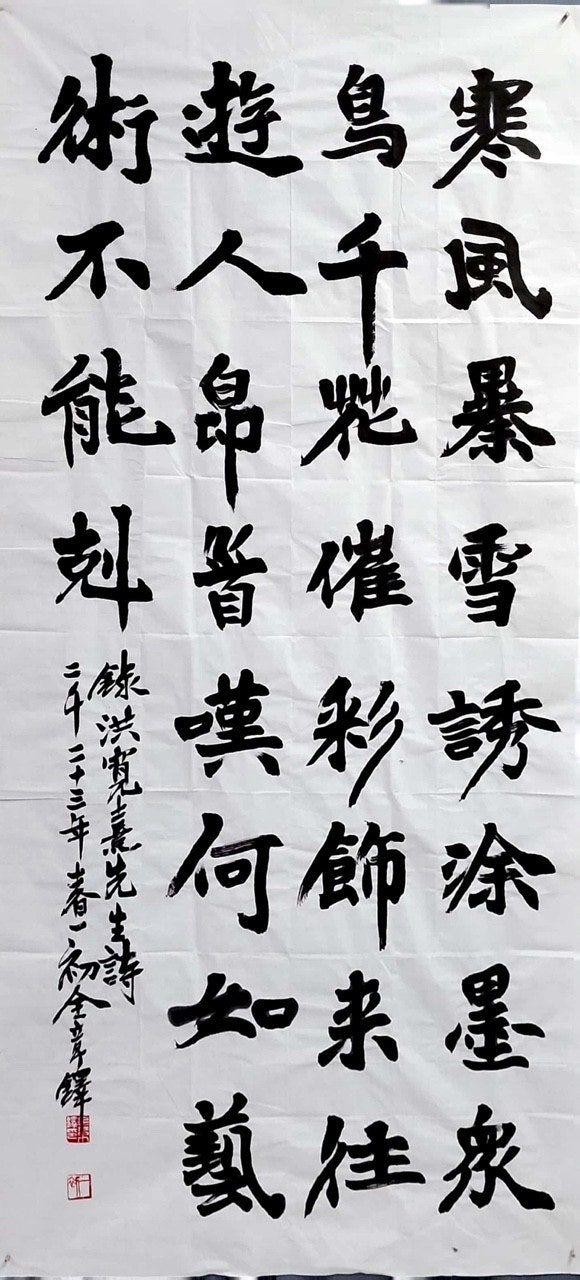 寒風暴雪誘涂墨衆
鳥千花催彩飾来往
遊人昂首嘆何如藝
術不能剋
錄洪寬熹先生詩
二千二十三年春一初金章鐸